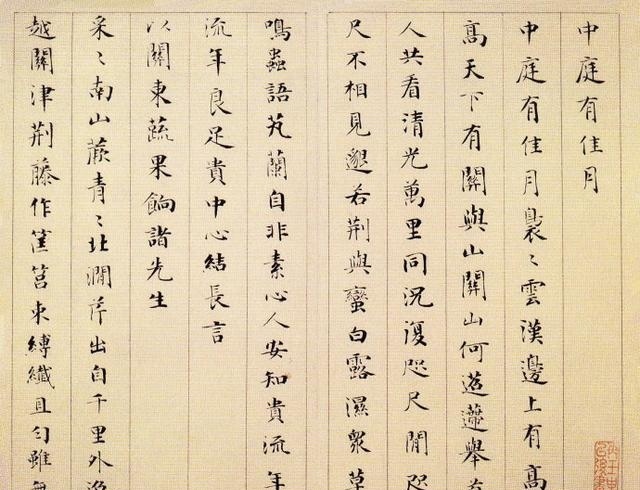 中庭有佳月
中庭有佳月裊〻雲漢邊上有高
高天下有關與山關山何迢遰舉
人共看清光萬里同況復咫尺閒咫
尺不相見邈若荆與蠻白露濕衆草
鳴蟲語芄蘭自非素心人安知貴流年
流年良足貴中心結長言
以關東蔬果餉諸先生
采〻南山蕨青〻北澗芹出自千里外
越關津荆藤作筐筥束縛纖且勻雖無